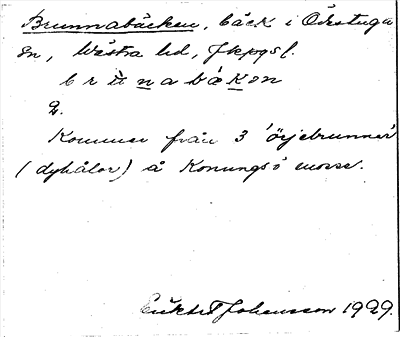 Brunnabäcken, bäck i Ödestugu
sn, Västra hd, Jkpgs l.
brùnabækən
2.
Kommer från 3 'örjebrunnar'
(dyhålor) å Konungsö mosse.
Johansson 1929.